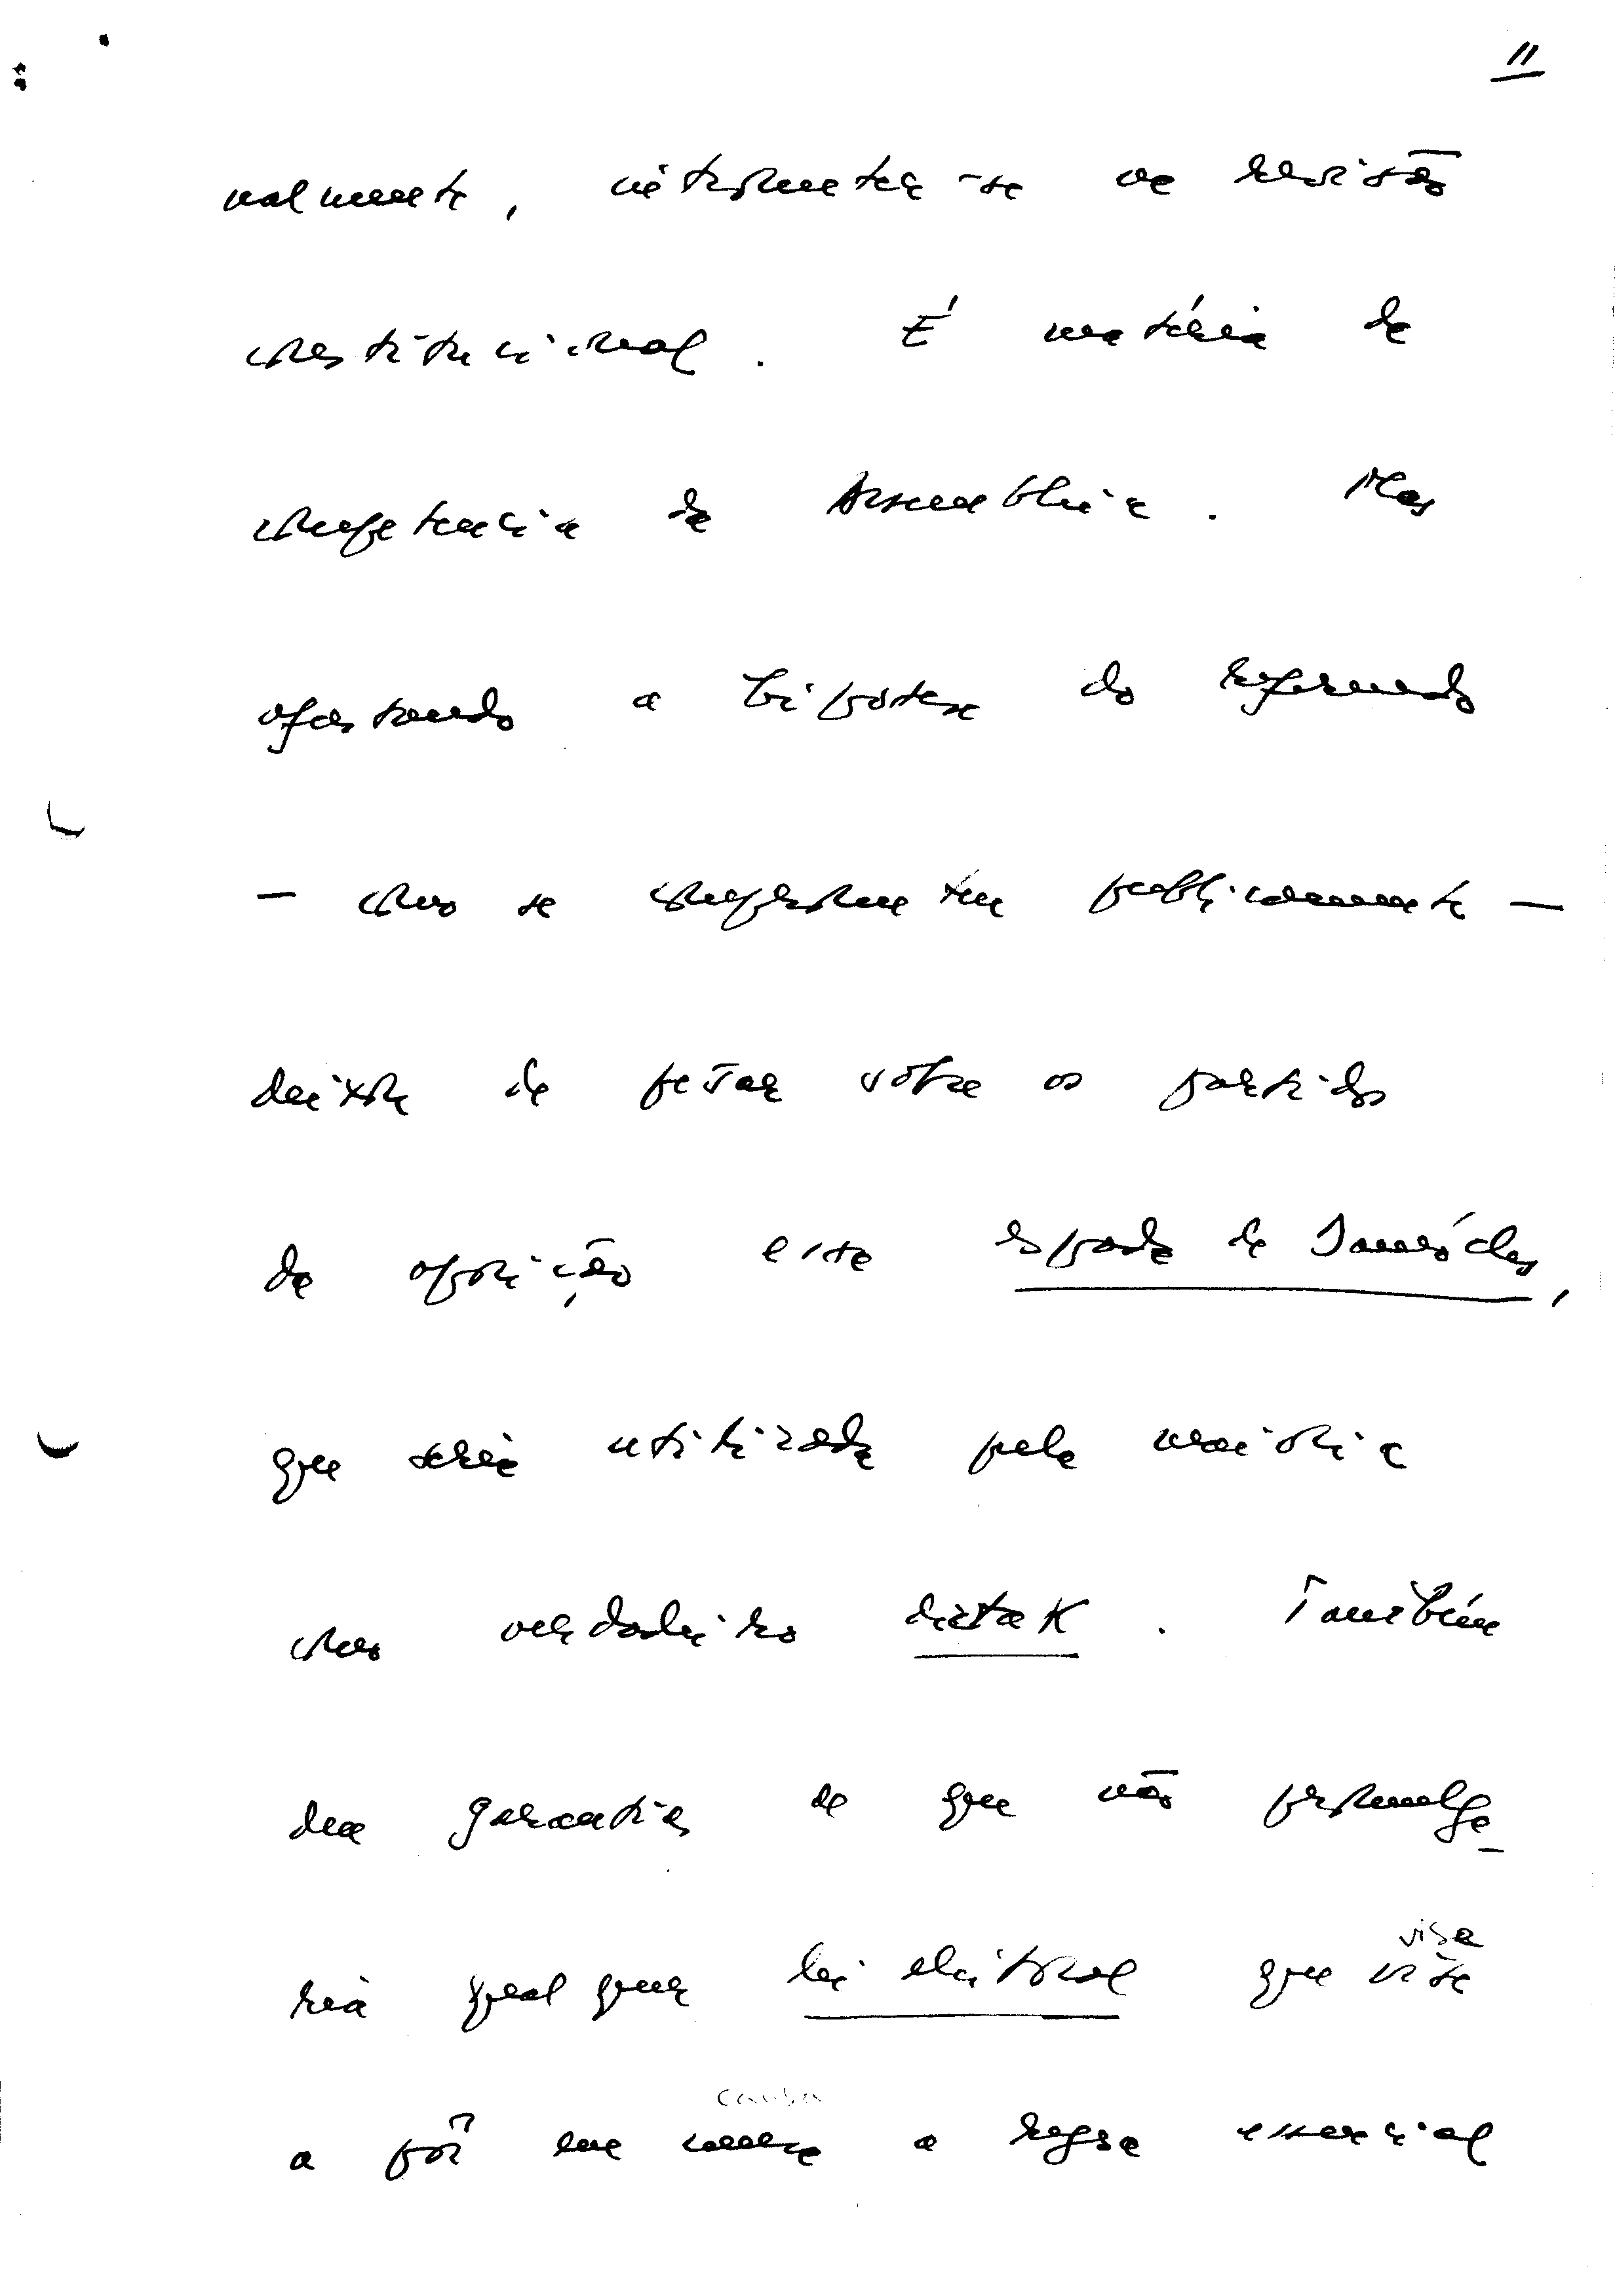 11
nalmente, intrometer-se na revisão
constitucional. É matéria da
competência da Assembleia. Mas
afastando a hipótese do referendo
— como se comprometeu publicamente —
deixou de pesar sobre os partidos
da oposição essa espada de Damócles,
que seria utilizada pela maioria
como verdadeiro diktak. Também
deu garantias de que não promulga-
ria qualquer lei eleitoral que vise
visa
causa
a pôr em causa a regra essencial